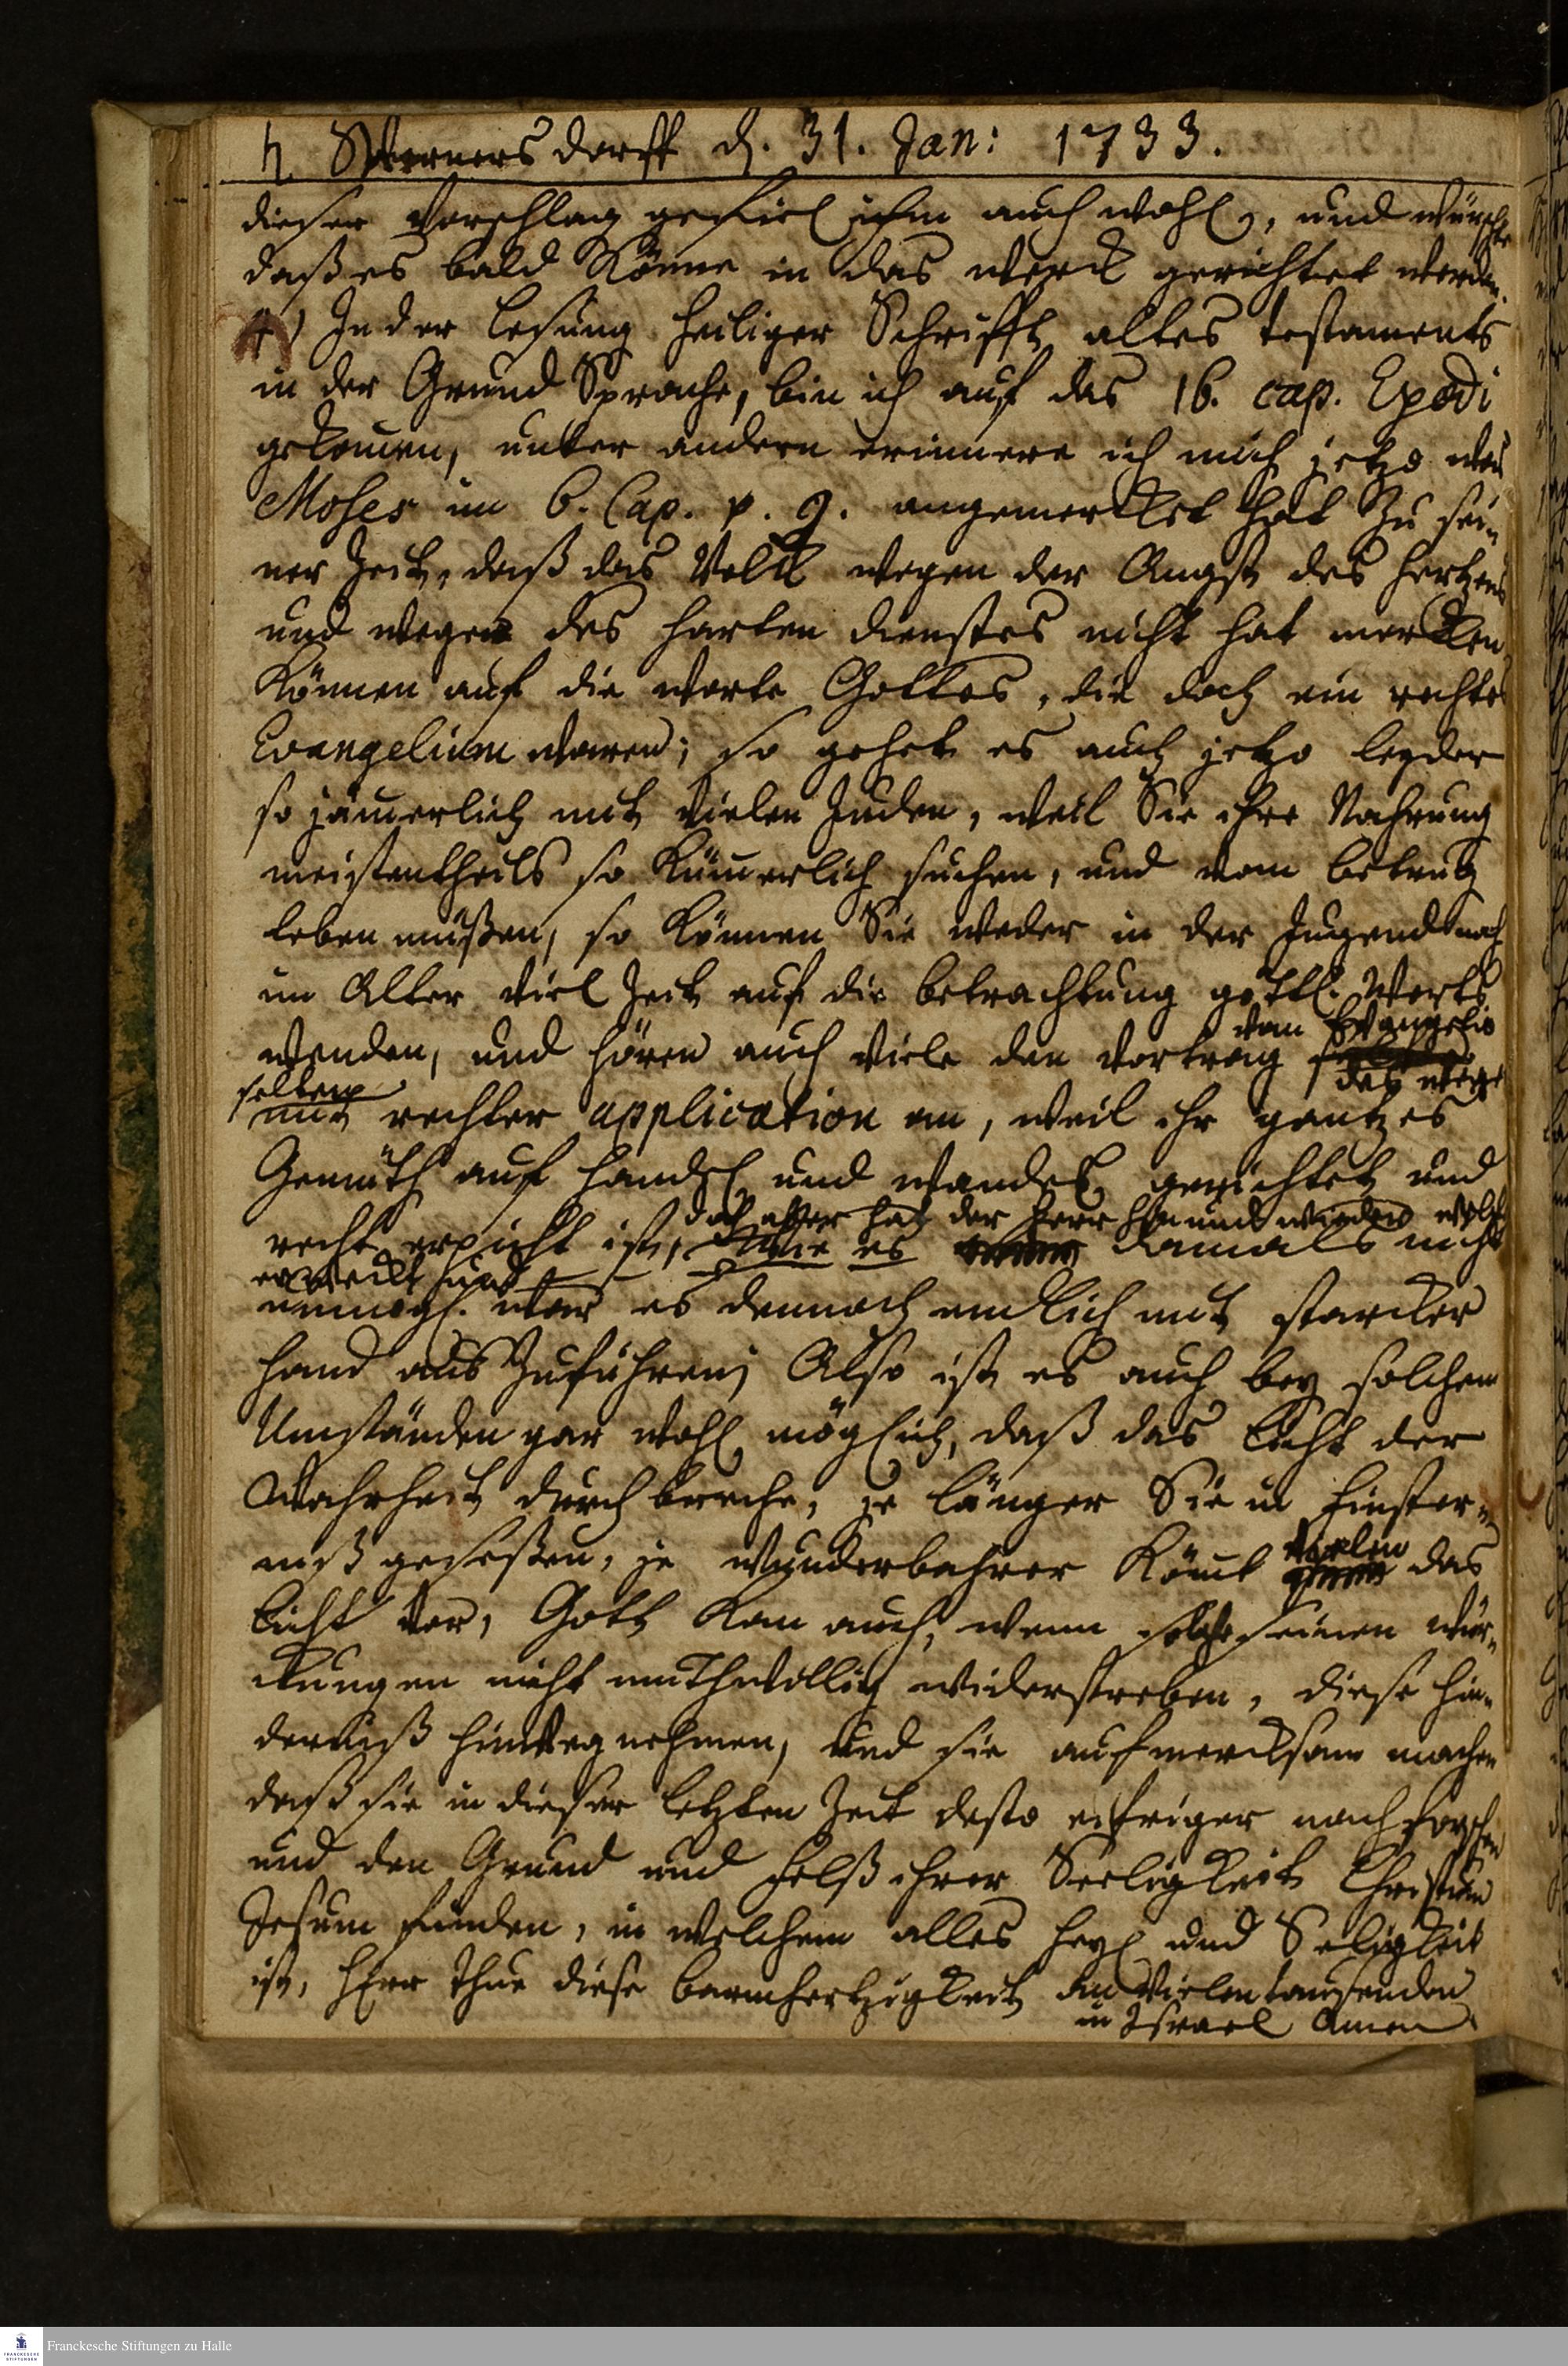 ♄ Wernersdorff d. 31. Jan: 1733.
dieser Vorschlag gefiel ihm auch wohl, und wünschte
daß es bald könne in das Werck gerichtet werden.
4) In der Lesung heiliger Schrifft altes Testaments
in der Grund Sprache, bin ich auf das 16. cap. Exodi
gekomen, unter andern erinnere ich mich jetzo was
Moses im 6. Cap. v. 9. angemercket hat zu sei-
ner Zeit, daß das Volck wegen der Angst des Hertzens
und wegen des harten Dienstes nicht hat mercken
können auf die Worte Gottes, die doch ein rechtes
Evangelium waren; so gehet es auch jetzo leyder
so jämerlich mit vielen Juden, weil Sie ihre Nahrung
meistentheils so kümerlich suchen, und vom betrug
leben müßen, so können Sie weder in der Jugend noch
im Alter viel Zeit auf die betrachtung göttl. Worts
vom Evangelio
wenden, und hören auch viele den Vortrag
des wege
selten
mit rechter application an, weil ihr gantzes
Gemüth auf Handel und Wandel gerichtet und
doch aber hat der Herr hin und wieder welche
recht erpicht ist, Wie es damals nicht
erweckt und
unmögl. war es dennoch endlich mit starcker
Hand auszuführen; Also ist es auch bey solchen
Umständen gar wohl möglich, daß das Licht der
Wahrheit durch breche, je länger Sie in Finster-
vielen
niß geseßen, je wunderbahrer kömt das
Licht vor, Gott kan auch, wenn solche seinen Wür-
ckungen nicht muthwillig widerstreben, diese Hin-
derniß hinweg nehmen, und sie aufmercksam machen
daß sie in dieser letzten Zeit desto eifriger nachforschen
und den Grund und Felß ihrer Seeligkeit Christum
Jesum finden, in welchem alles Heyl und Seligkeit
ist, Herr thue diese barmhertzigkeit an vielen tausenden
in Israel Amen.
Franckesche Stiftungen zu Halle